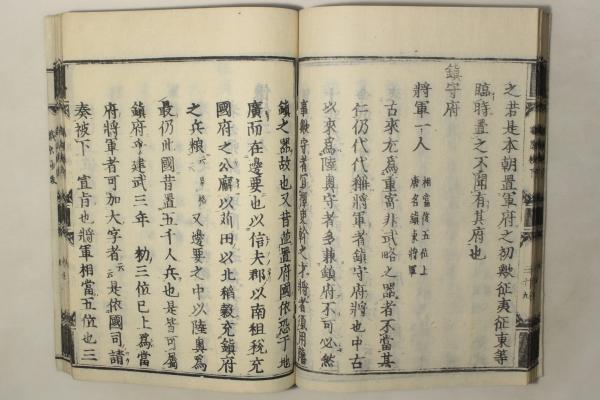 之若是本朝置軍府之初歟征夷征東等
臨時置之不聞有其府也
鎮守府
將軍一人
相當從五位上
唐名鎮東將軍
古來尤爲重寄非武略之器者不當其
仁仍代代稱將軍者鎮守府將也中古
以來爲陸奥守者多兼鎮府不可必然
事歟守者宜擇吏幹之才將者須用藩
鎮之器故也又昔並置府國依恐于地
廣而在邊要也以信夫郡以南租稅充
國府之公廨以苅田以北稻穀充鎮府
之兵粮 又邊要之中以陸奥爲
最仍此國昔置五千人兵也是皆可屬
鎮府建武三年 勅三位已上爲當
府將軍者可加大字者云云是依國司請
奏被下 宣旨也將軍相當五位也三